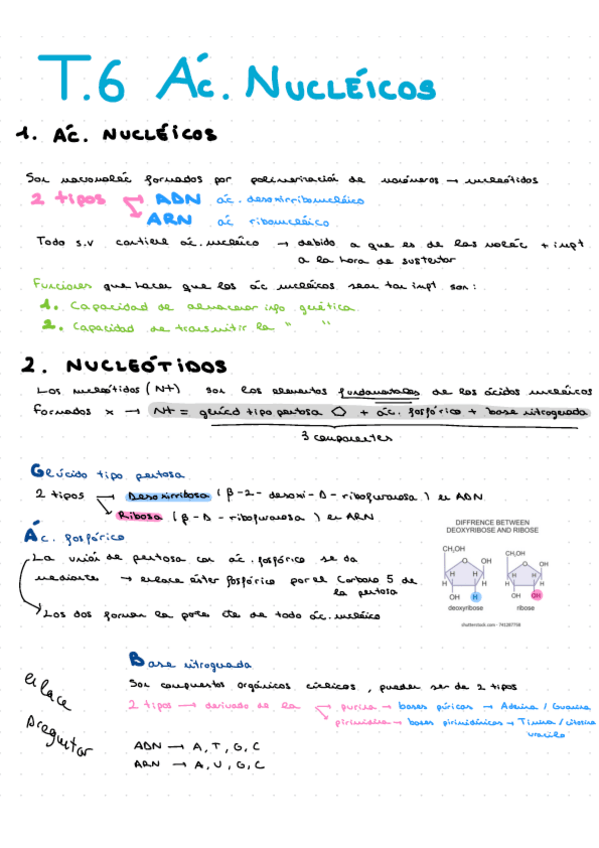 T.6 Ác. Nucléicos
1. Ác. Nucléicos
Son macromoléc formados por polimerización de monómeros → nucleótidos
2 tipos → ADN ác. desoxirribonucléico
→ ARN ác ribonucléico
Todo s.v contiene ác. nucléico → debido a que es de las moléc + impt
a la hora de sustentar
Funciones que hacen que los ác nucléicos sean tan impt son:
1. Capacidad de almacenar info genética.
2. Capacidad de transmitir la " "
2. Nucleótidos
Los nucleótidos (Nt) son los elementos fundamentales de los ácidos nucléicos
Formados x → Nt = glúcid tipo pentosa + ác. fosfórico + base nitrogenada
3 componentes
Glúcido tipo pentosa
2 tipos → Desoxirribosa (β-2-desoxi-D-ribofuranosa) en ADN
→ Ribosa (β-D-ribofuranosa) en ARN
Ác. fosfórico
La unión de pentosa con ác. fosfórico se da
mediante → enlace éster fosfórico por el Carbono 5 de
la pentosa
Los dos forman la parte cte de todo ác. nucléico
DIFFRENCE BETWEEN
DEOXYRIBOSE AND RIBOSE
CH₂OH O OH H H H H OH H
deoxyribose
CH₂OH O OH H H H H OH OH
ribose
shutterstock.com · 741287758
Base nitrogenada
Son compuestos orgánicos cíclicos, pueden ser de 2 tipos
2 tipos → derivado de la → purina → bases púricas → Adenina / Guanina
→ pirimidina → bases pirimidínicas → Timina / citosina
uracilo
enlace
preguntar
ADN → A, T, G, C
ARN → A, U, G, C